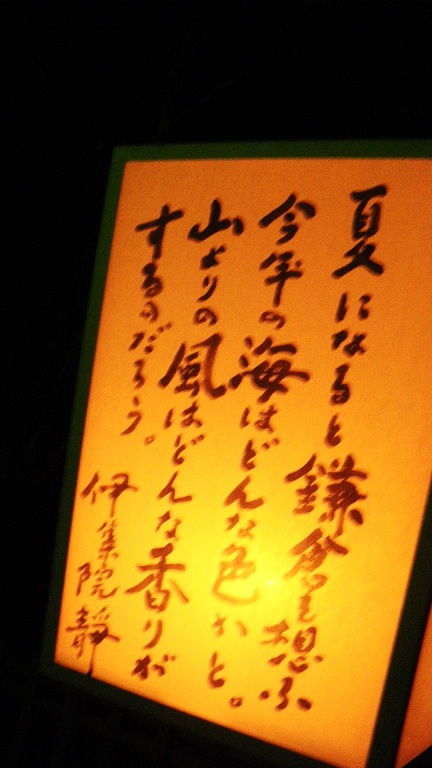 夏になると鎌倉を想ふ
今年の海はどんな色かと。
山よりの風はどんな香りが
するのだろう。
伊集院静